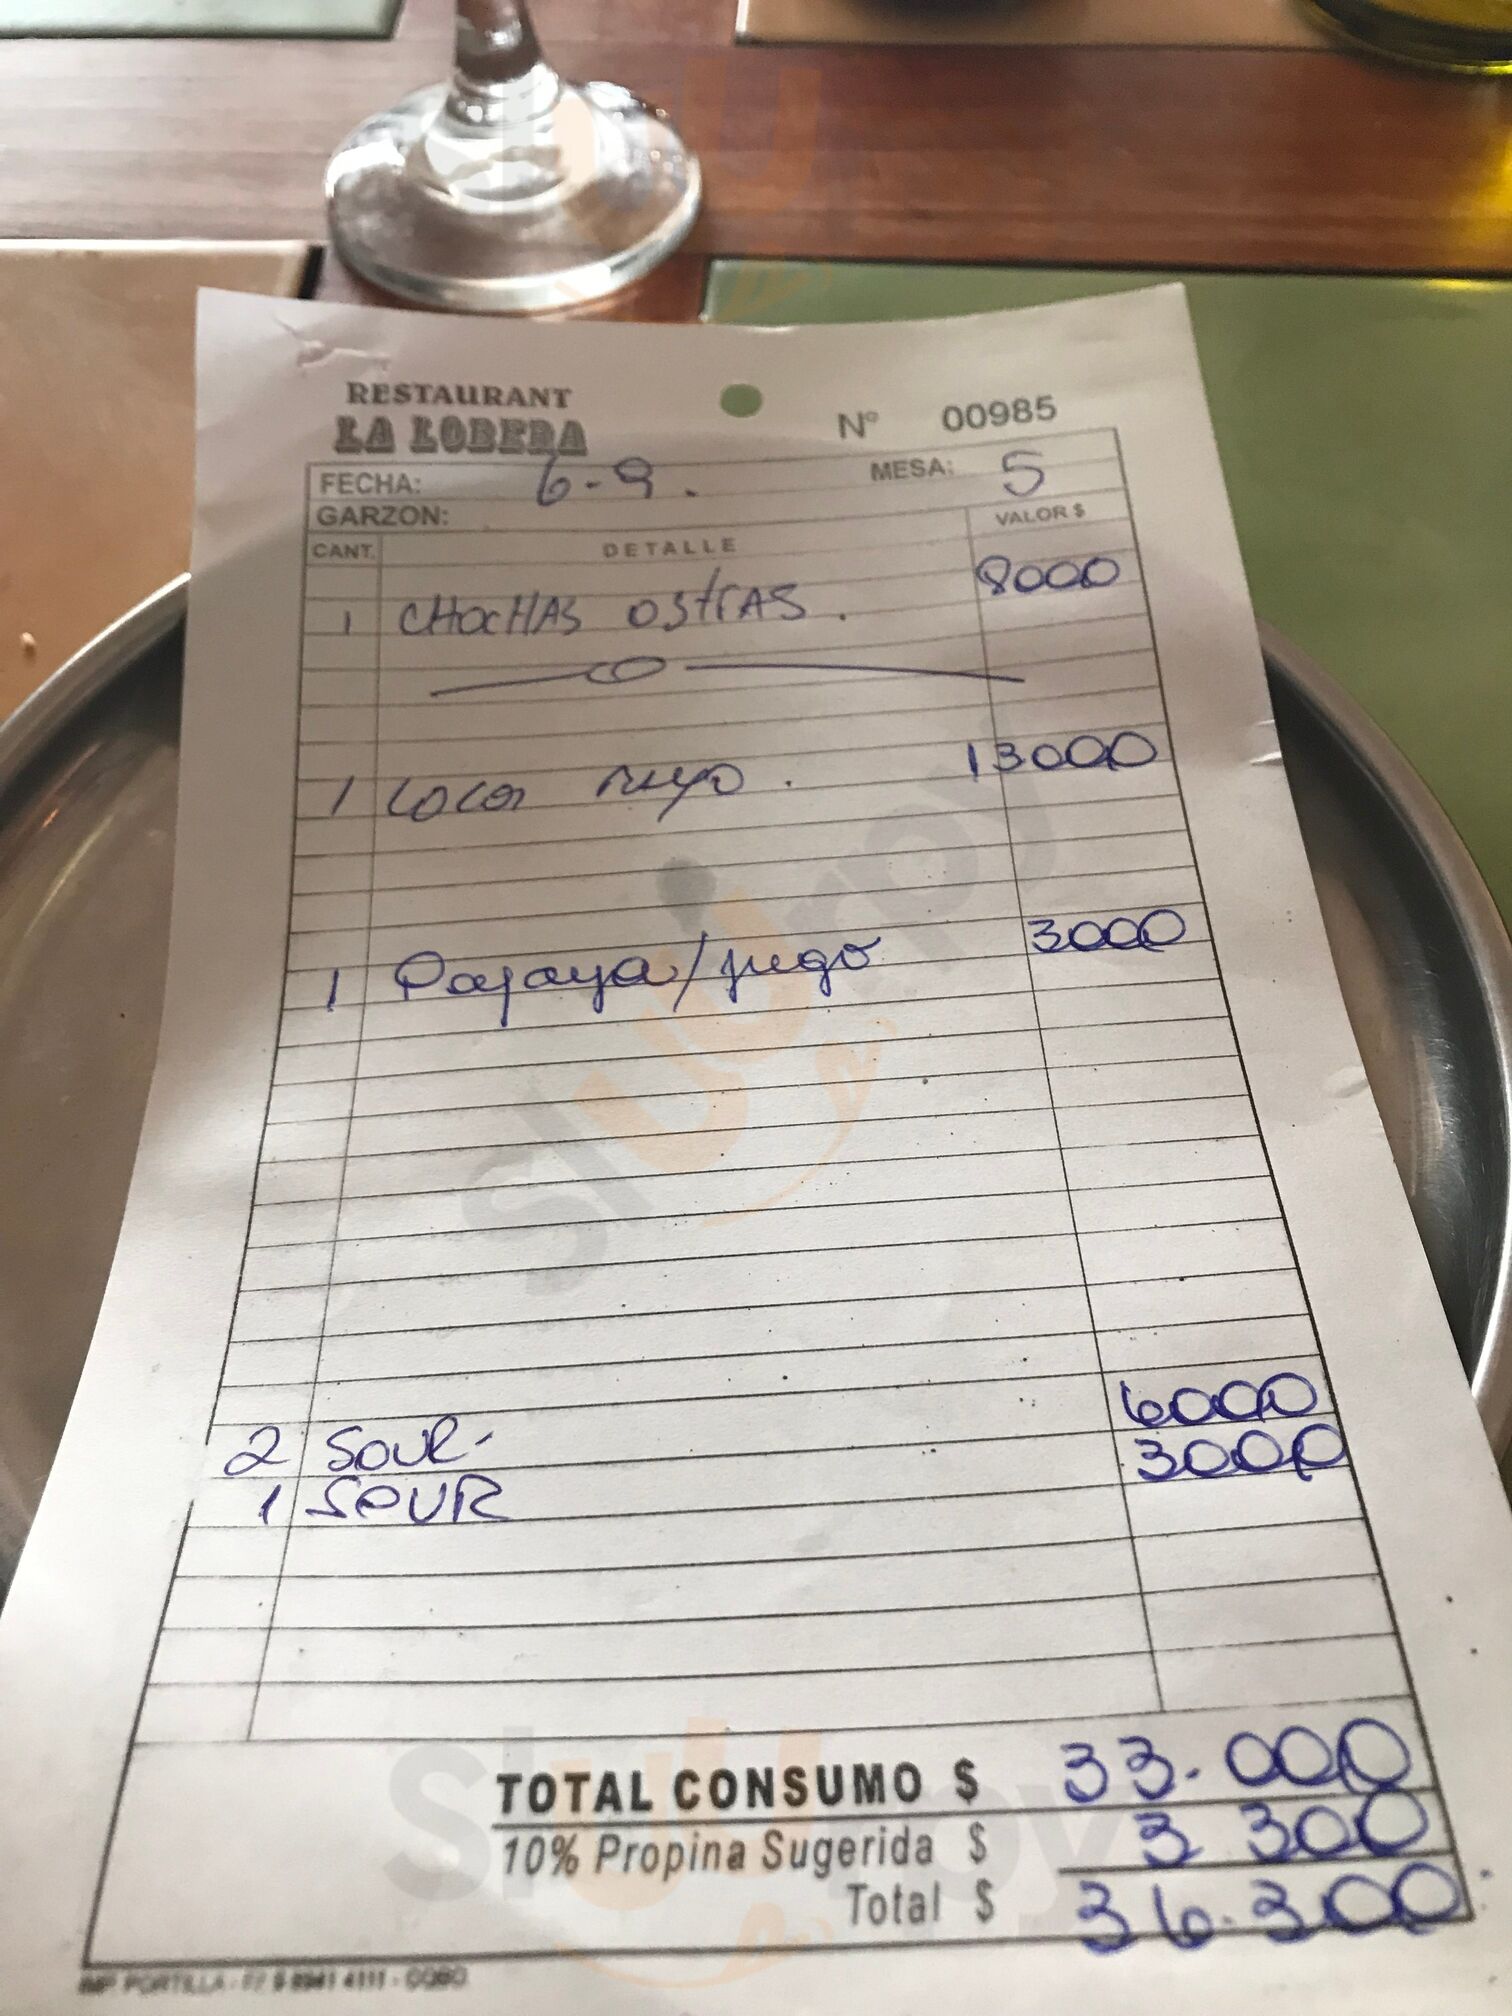 RESTAURANT
LA LOBERA
Nº 00985
FECHA: 6-9.
MESA: 5
GARZON:
CANT. DETALLE VALOR $
1 CHOCHAS OSTRAS. 8000
1 Locos mayo. 13000
1 Papaya/jugo 3000
2 SOUR- 6000
1 SOUR 3000
TOTAL CONSUMO $ 33.000
10% Propina Sugerida $ 3 300
Total $ 36.300
IMP. PORTILLA - F/ 9 8941 4111 - CQBO
slurpy
slurpy